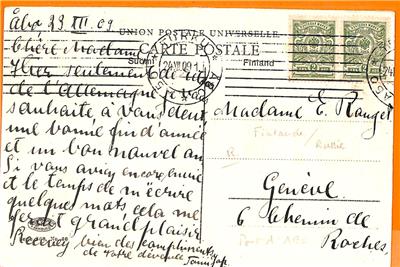 Åbo 23 XII. 09
UNION POSTALE UNIVERSELLE.
CARTE POSTALE
Suomi Finland
Chère Madame
Hier seulement de
de l'Allemagne je vous
souhaite, à vous dent
une bonne fin d'année
et un bon nouvel an
Si vous avez encore envie
et le temps de m'écrire
quelques mots cela me
grand plaisir
Recevez bien des compliments
de votre dévouée
Madame E. Ranget
Finlande/
Russie
Genève
6 Chemin de
Roches.